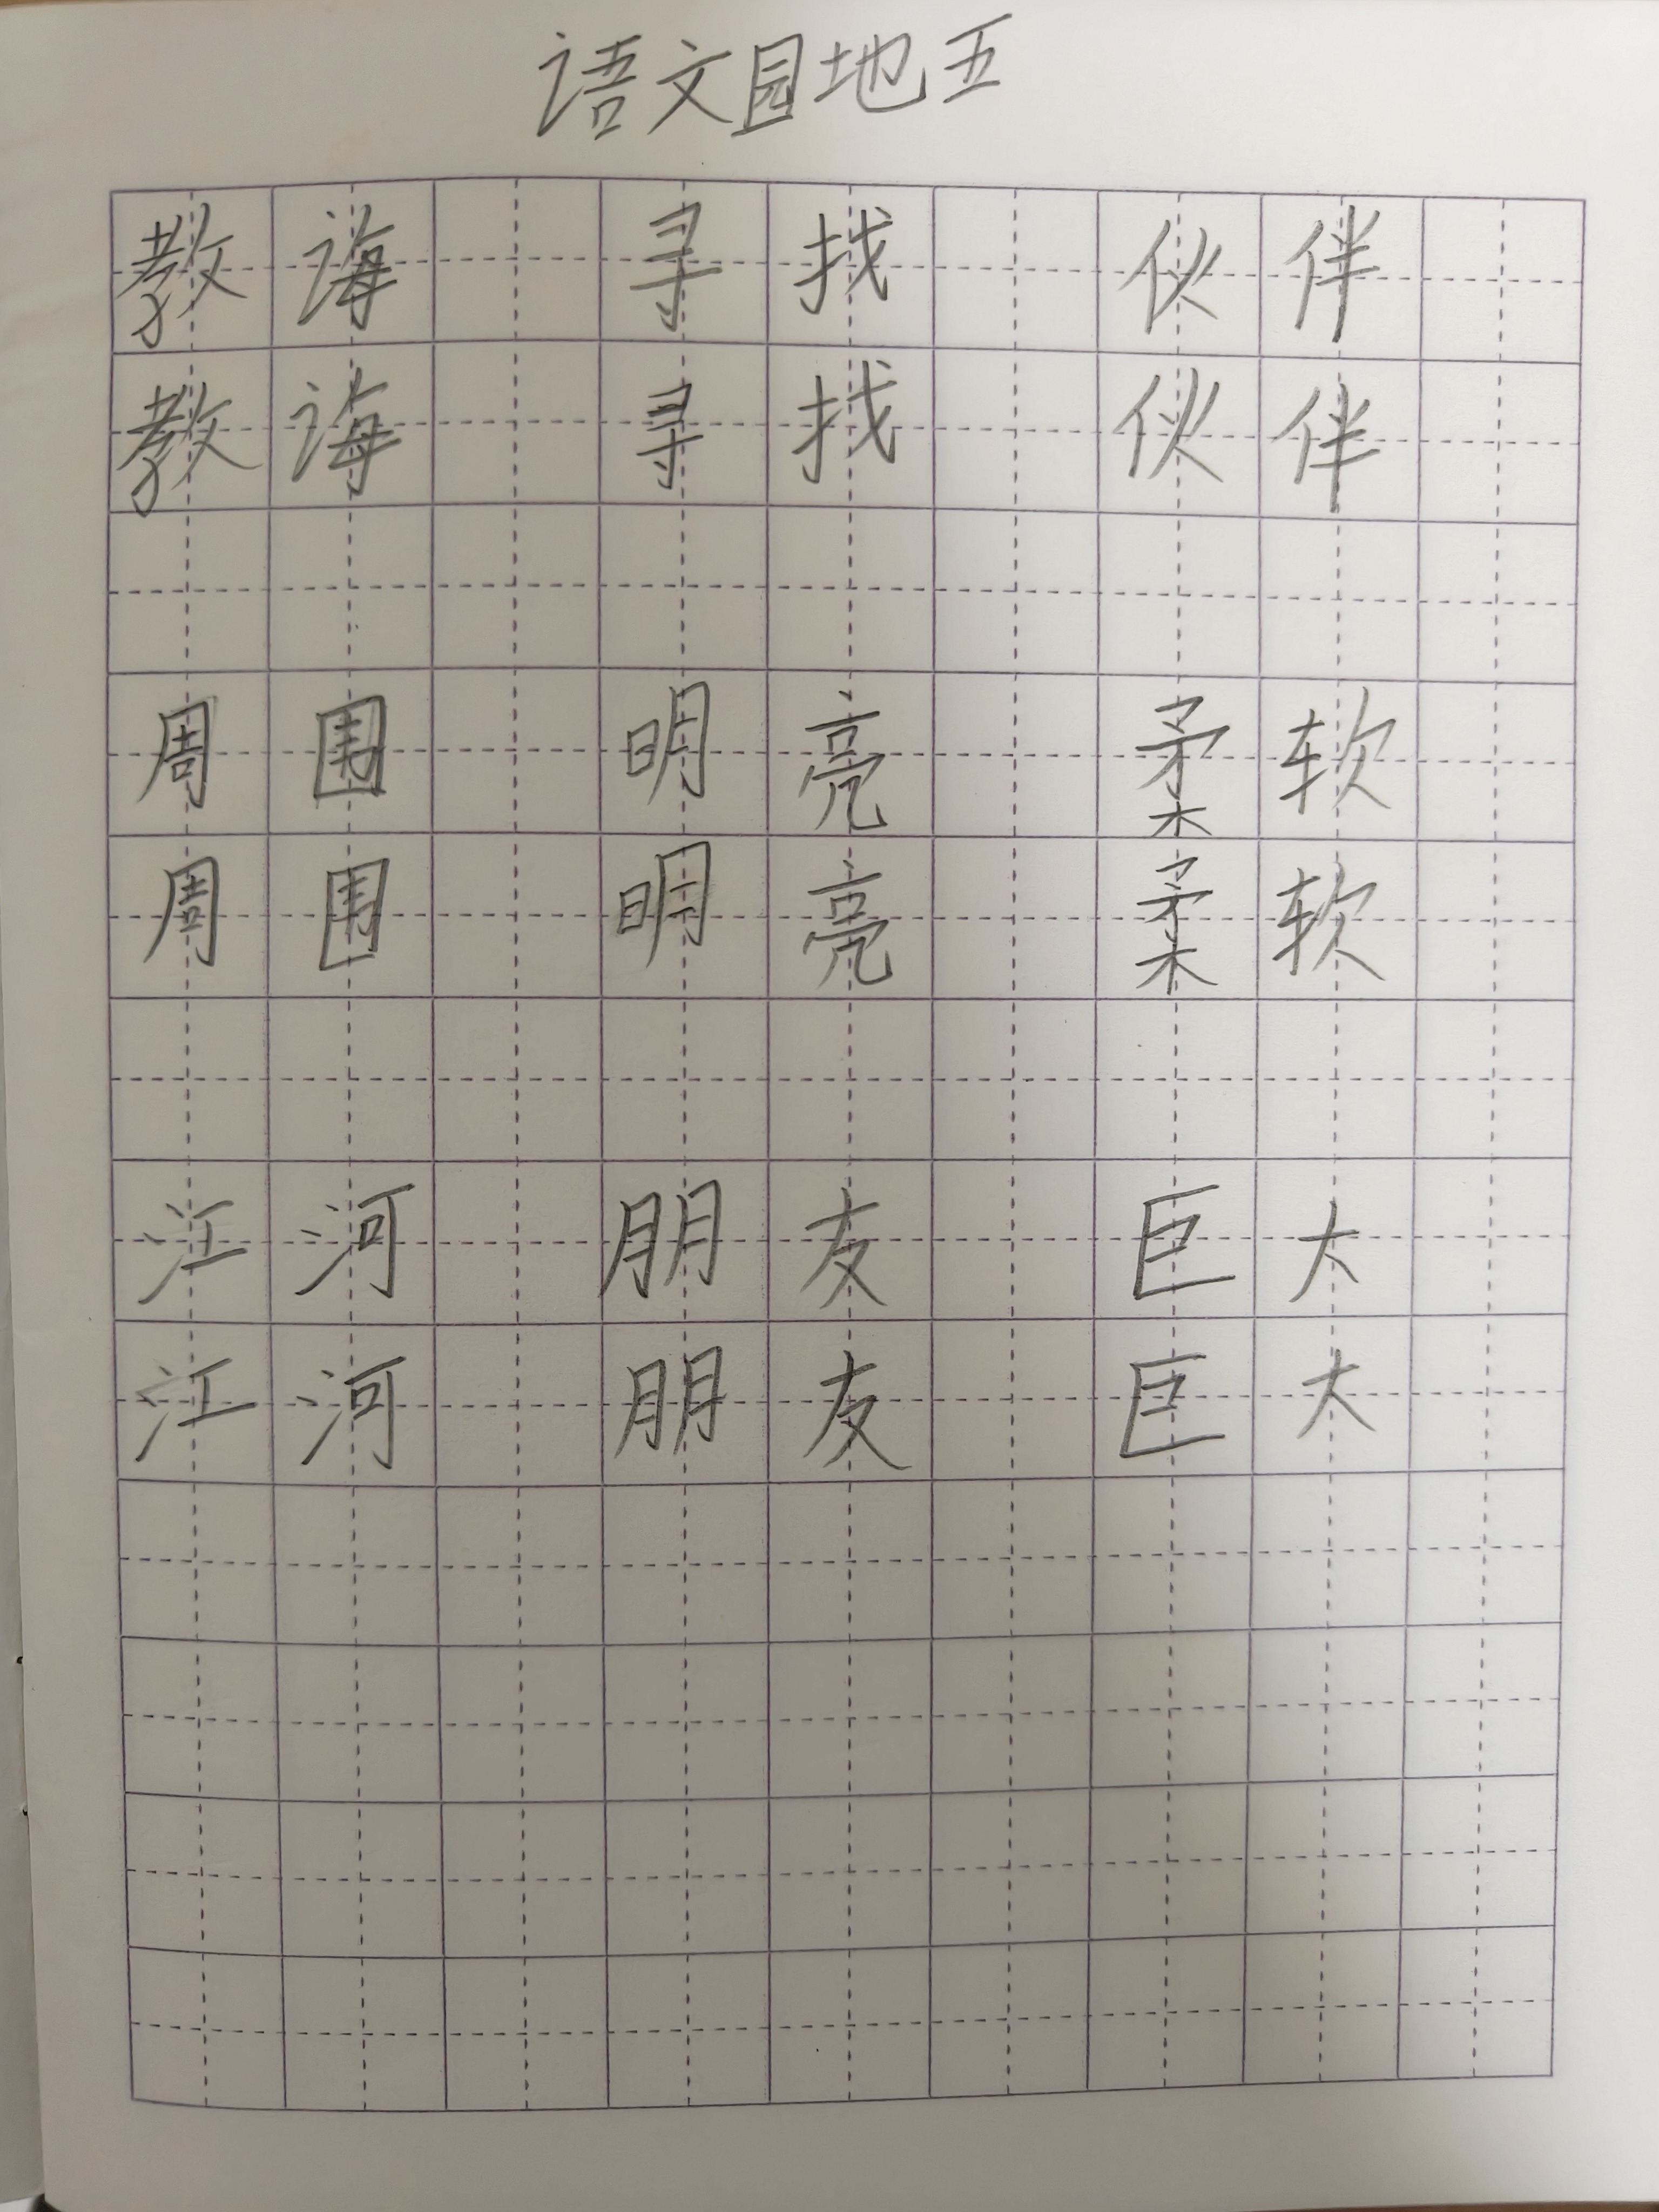 语文园地五
教诲 寻找 伙伴
教诲 寻找 伙伴
周围 明亮 柔软
周围 明亮 柔软
江河 朋友 巨大
江河 朋友 巨大